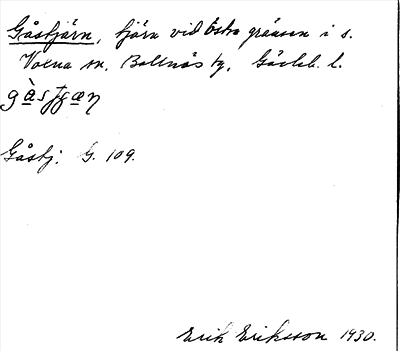 Gåstjärn, tjärn vid östra gränsen i s.
Voxna sn, Bollnäs tg, Gävleb. l.
gàstjæṇ
Gåstj: G. 109.
Erik Eriksson 1930.